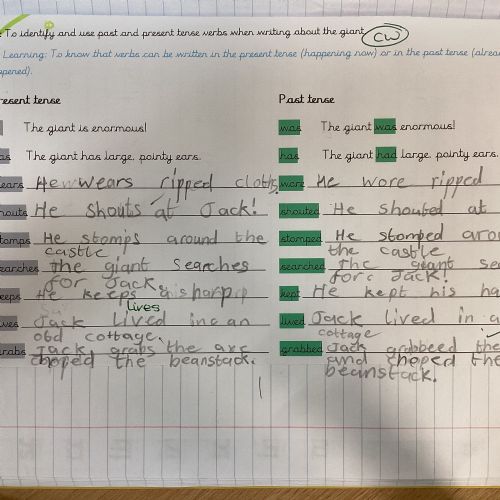 : To identify and use past and present tense verbs when writing about the giant. CW
Learning: To know that verbs can be written in the present tense (happening now) or in the past tense (alrea
ppened).
resent tense Past tense
The giant is enormous! was The giant was enormous!
as The giant has large, pointy ears. has The giant had large, pointy ears.
ears He wears ripped cloths. wore He wore ripped
houts He shouts at Jack! shouted He shouted at
tomps He stomps around the castle stomped He stomped arou the castle
earches the giant searches for Jack. searched The giant sea for Jack!
eeps He keeps his harp kept He kept his ha
lives
ives Jack lived in an old cottage. lived Jack lived in a cottage
grabs Jack grabs the axe choped the beanstack. grabbed Jack grabbeed the and choped the beanstack.